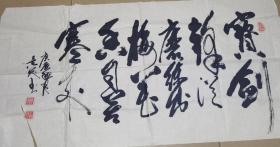 寶劍
鋒從
磨砺出
梅花
香自苦
寒来
庚寅